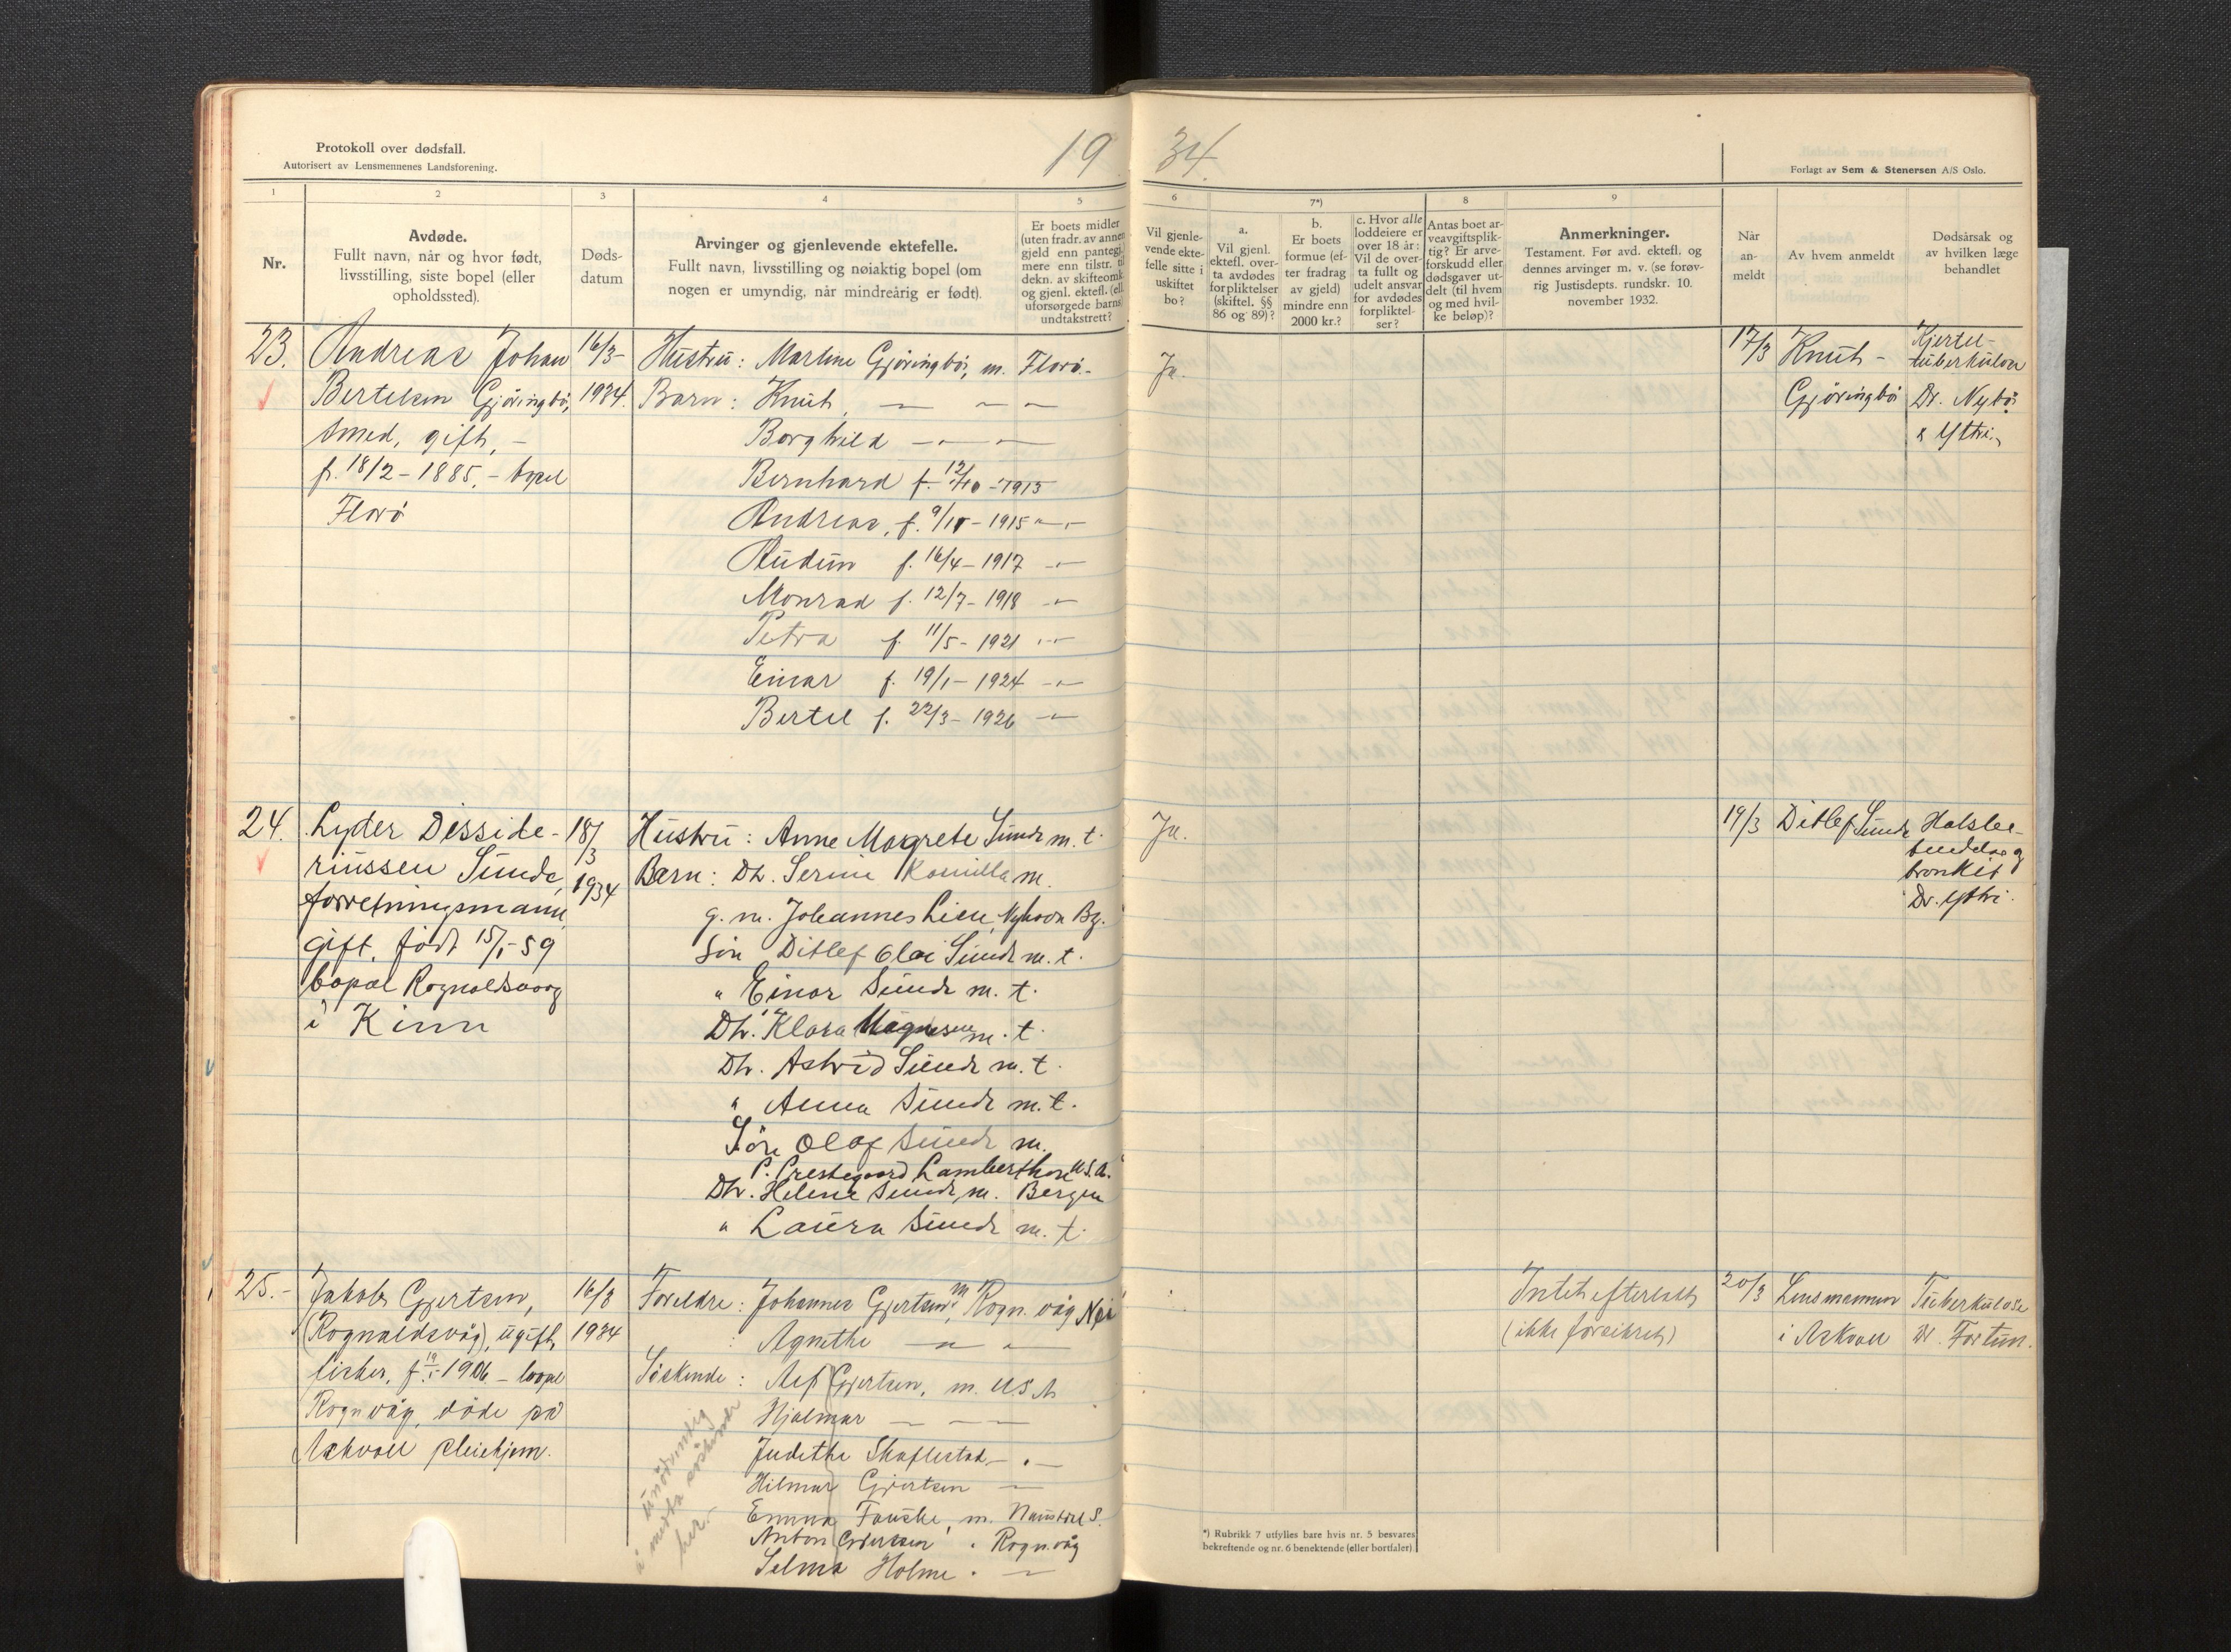 Protokoll over dødsfall.
Autorisert av Lensmennenes Landsforening.
19 34.
Forlagt av Sem & Stenersen A/S Oslo.
1
2
3
4
5
6
7*)
8
9
Nr.
Avdøde.
Fullt navn, når og hvor født,
livsstilling, siste bopel (eller
opholdssted).
Døds-
datum
Arvinger og gjenlevende ektefelle.
Fullt navn, livsstilling og nøiaktig bopel (om
nogen er umyndig, når mindreårig er født).
Er boets midler
(uten fradr. av annen
gjeld enn pantegj.)
mere enn tilstr. til
dekn. av skifteomk.
og gjenl. ektefl. (ell.
uforsørgede barns)
undtakstrett?
Vil gjenle-
vende ekte-
felle sitte i
uskiftet
bo?
a.
Vil gjenl.
ektefl. over-
ta avdødes
forpliktelser
(skiftel. §§
86 og 89)?
b.
Er boets
formue (ef-
ter fradrag
av gjeld)
mindre enn
2000 kr.?
c. Hvor alle
loddeiere er
over 18 år:
Vil de over-
ta fullt og
udelt ansvar
for avdødes
forpliktel-
ser?
Antas boet ar-
veavgiftsplik-
tig? Er arve-
forskudd eller
dødsgaver ut-
delt (til hvem
og med hvil-
ke beløp)?
Anmerkninger.
Testament. Før avd. ektefl. og
dennes arvinger m. v. (se forøv-
rig Justisdepts. rundskr. 10.
november 1932.
Når
an-
meldt
Av hvem anmeldt
Dødsårsak og
av hvilken læge
behandlet
23.
Andreas Johan
Bertelsen Gjøringbø,
smed, gift, -
f. 18/2 - 1885. - bopel
Florø
16/3-
1934.
Hustru: Martine Gjøringbø, m. Florø.-
Barn: Knut, — — —
Borghild — — —
Bernhard f. 12/10 - 1913
Andreas, f. 9/11 - 1915 - " -
Audun f. 16/4 - 1917 - " -
Monrad f. 12/7 - 1918 - " -
Petra f. 11/5 - 1921 - " -
Einar f. 19/1 - 1924 - " -
Bertel f. 22/3 - 1926 - " -
Ja.
17/3
Knut -
Gjøringbø
Kjertel-
tuberkulose
Dr. Nybø
& Ytri.
24.
Lyder Disside-
riussen Sunde,
forretningsmann,
gift, født 15/1-59
bopæl Rognaldsvaag
i Kinn
18/3
1934
Hustru: Anne Magrete Sunde m. t.
Barn: Dt. Serine Kamilla m.
g. m. Johannes Lien, Nyhavn Bg.
Søn Ditlef Olai Sunde m. t.
" Einar Sunde m. t.
Dt. Klara Magnesen m. t.
Dt. Astrid Sunde m. t.
" Anna Sunde m. t.
Søn Olaf Sunde m.
Lamberthon U.S.A.
Dt. Helene Sunde, m. Bergen
" Laura Sunde m. t.
Ja.
19/3
Ditlef Sunde
Halsbe-
tendelse og
bronkit
Dr. Ytri.
25.-
Jakob Gjertsen,
(Rognaldsvåg), ugift,
fisker, f. 19/5 1906 - bopel
Rognvåg, døde på
Askvoll pleiehjem.
16/3
1934
Foreldre: Johannes Gjertsen, m. Rogn. våg Nei
: Agnethe — " — " —
Søskende: Alf Gjertsen, m. USA
Hjalmar — — —
Judithe Skaflestad — " —
Hilmar Gjertsen —
Emma Fauske, m. Naustdal S.
Anton Gjertsen " Rognvåg
Selma Holme " —
unødvendig
å medta søskende
her.-
Intet efterlatt
(ikke forsikret)
20/3
Lensmannen
i Askvoll
Tuberkulose
Dr. Fortun.
*) Rubrikk 7 utfylles bare hvis nr. 5 besvares
bekreftende og nr. 6 benektende (eller bortfaler)